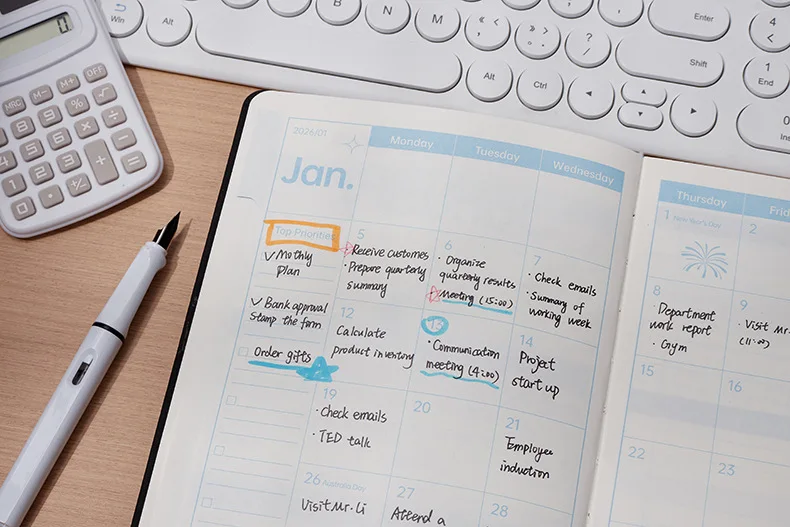 0
Win
Alt
B
N
M
Enter
Shift
Alt
Ctrl
End
Ins
MRC
M-
M+
OFF
8
9
%
√
4
5
6
×
÷
1
2
3
+
−
0
.
+/-
=
2026/01
Jan.
Monday
Tuesday
Wednesday
Top Priorities
✓ Mothly
Plan
✓ Bank approval
Stamp the form
Order gifts
5
Receive customers
· Prepare quarterly
summary
6
· Organize
quarterly results
Meeting (15:00)
7
· Check emails
· Summary of
working week
12
Calculate
product inventory
13
· Communication
meeting (4:00)
14
Project
start up
19
· Check emails
· TED talk
20
21
Employee
induction
26 Australia Day
Visit Mr. Li
27
Attend a
28
Thursday
1 New Year's Day
2
8
· Department
work report
· Gym
9
· Visit Mr.
(11:00)
15
16
22
23